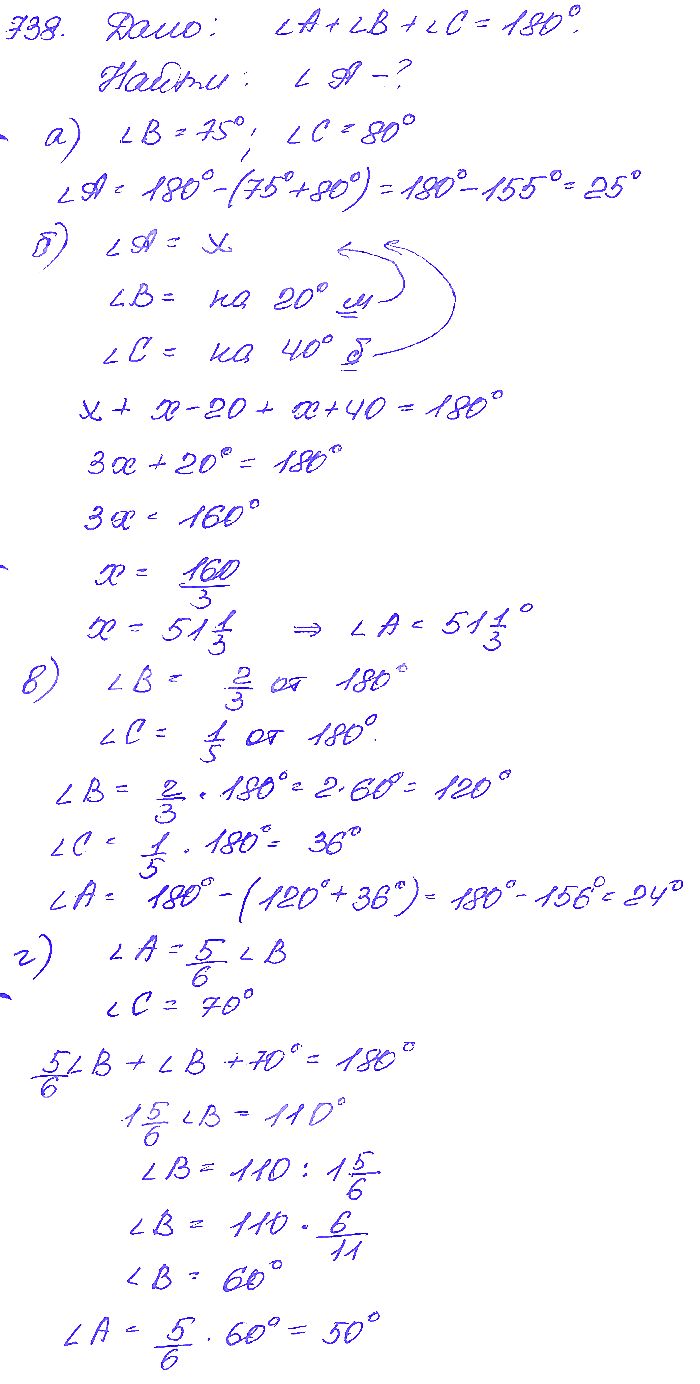 738. Дано: ∠A+∠B+∠C=180°.
Найти: ∠A-?
а) ∠B=75°; ∠C=80°
∠A= 180°-(75°+80°)=180°-155°=25°
б) ∠A= x
∠B= на 20° м
∠C= на 40° б
x + x-20 + x+40 = 180°
3x+20°= 180°
3x= 160°
x= 160/3
x= 51 1/3 ⇒ ∠A= 51 1/3°
в) ∠B= 2/3 от 180°
∠C= 1/5 от 180°.
∠B= 2/3 · 180°= 2·60°= 120°
∠C= 1/5 · 180°= 36°
∠A= 180°-(120°+36°)= 180°-156°= 24°
г) ∠A= 5/6 ∠B
∠C= 70°
5/6∠B + ∠B +70°= 180°
1 5/6 ∠B= 110°
∠B= 110 : 1 5/6
∠B= 110 · 6/11
∠B= 60°
∠A= 5/6 · 60°= 50°